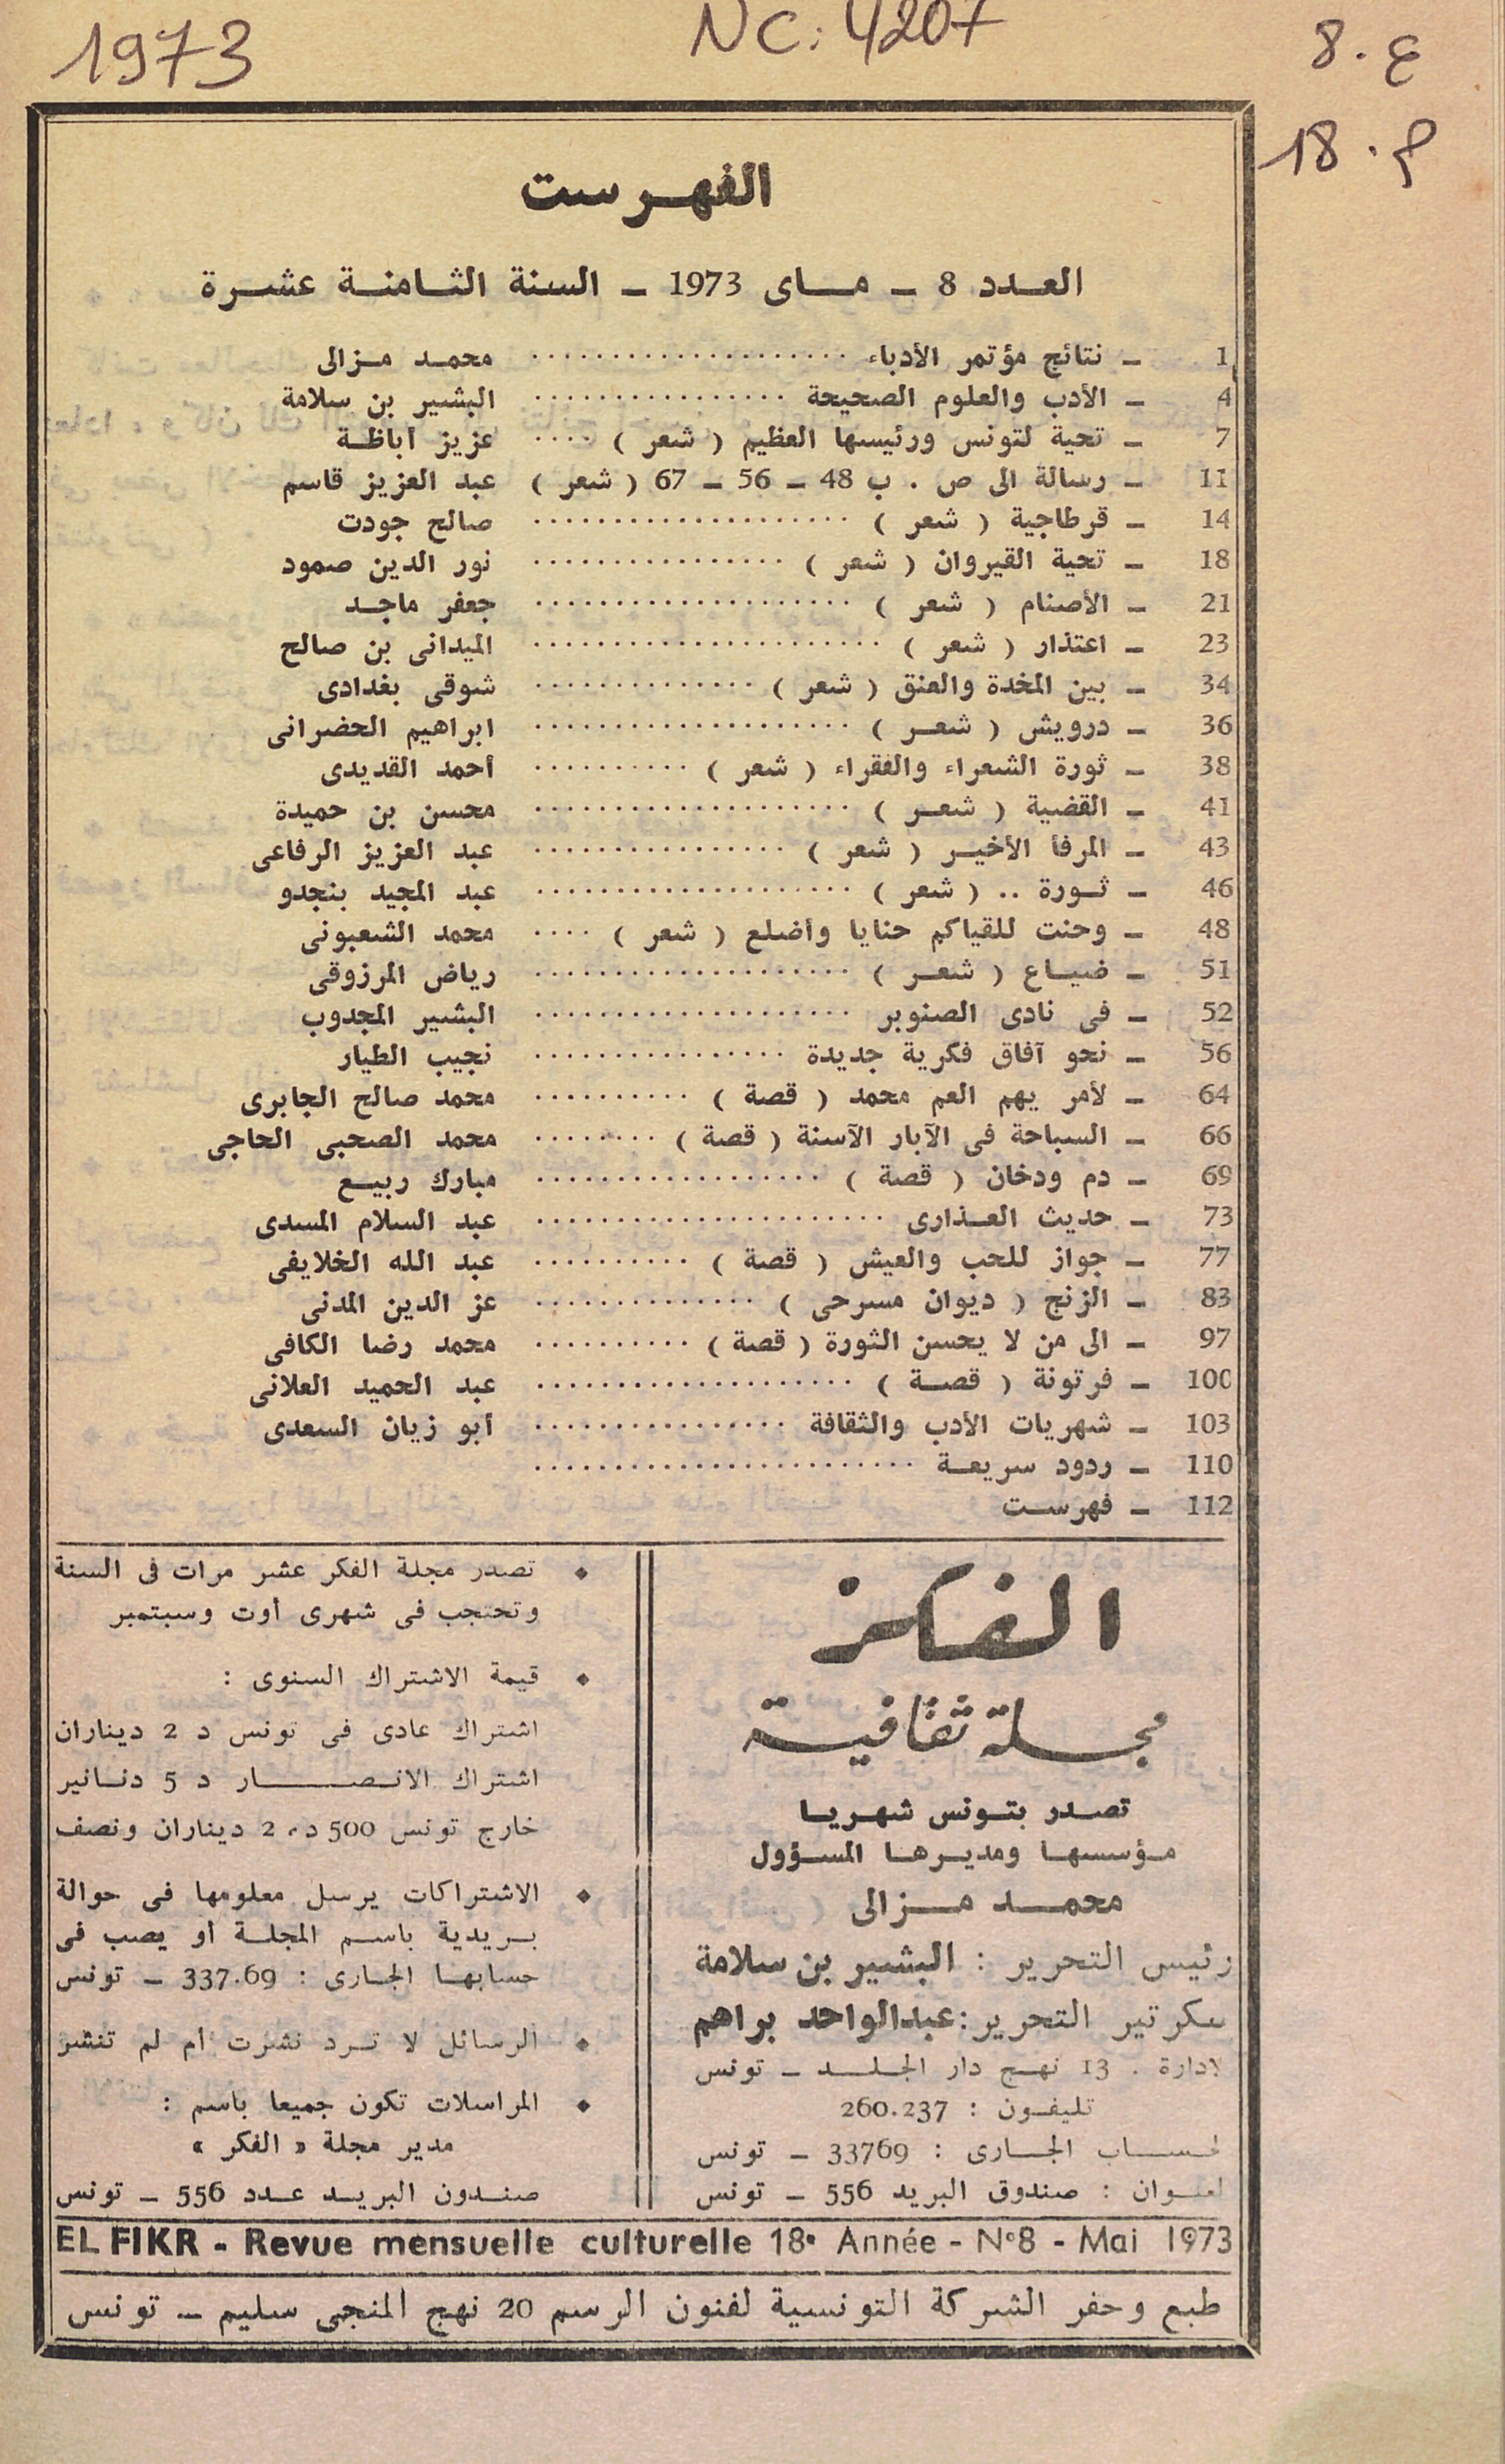 1973
NC: 4207
ع. 8
م. 18
الفهرست
العدد 8 ـ ماى 1973 ـ السنة الثامنة عشرة
1 ـ نتائج مؤتمر الأدباء .................... محمد مزالى
4 ـ الأدب والعلوم الصحيحة ................ البشير بن سلامة
7 ـ تحية لتونس ورئيسها العظيم ( شعر ) .... عزيز أباظة
11 ـ رسالة الى ص . ب 48 ـ 56 ـ 67 ( شعر ) عبد العزيز قاسم
14 ـ قرطاجية ( شعر ) .................... صالح جودت
18 ـ تحية القيروان ( شعر ) ................ نور الدين صمود
21 ـ الأصنام ( شعر ) .................... جعفر ماجد
23 ـ اعتذار ( شعر ) ...................... الميدانى بن صالح
34 ـ بين المخدة والعنق ( شعر ) .............. شوقى بغدادى
36 ـ درويش ( شعر ) .................... ابراهيم الحضرانى
38 ـ ثورة الشعراء والفقراء ( شعر ) .......... أحمد القديدى
41 ـ القضية ( شعر ) .................... محسن بن حميدة
43 ـ المرفأ الأخير ( شعر ) ................ عبد العزيز الرفاعى
46 ـ ثورة .. ( شعر ) .................... عبد المجيد بنجدو
48 ـ وحنت للقياكم حنايا وأضلع ( شعر ) .... محمد الشعبونى
51 ـ ضياع ( شعر ) .................... رياض المرزوقى
52 ـ فى نادى الصنوبر .................... البشير المجدوب
56 ـ نحو آفاق فكرية جديدة ................ نجيب الطيار
64 ـ لأمر يهم العم محمد ( قصة ) .......... محمد صالح الجابرى
66 ـ السباحة فى الآبار الآسنة ( قصة ) ........ محمد الصحبى الحاجى
69 ـ دم ودخان ( قصة ) .................. مبارك ربيع
73 ـ حديث العذارى ...................... عبد السلام المسدى
77 ـ جواز للحب والعيش ( قصة ) .......... عبد الله الخلايفى
83 ـ الزنج ( ديوان مسرحى ) .............. عز الدين المدنى
97 ـ الى من لا يحسن الثورة ( قصة ) .......... محمد رضا الكافى
100 ـ فرتونة ( قصة ) .................... عبد الحميد العلانى
103 ـ شهريات الأدب والثقافة ................ أبو زيان السعدى
110 ـ ردود سريعة ........................
112 ـ فهرست
الفكر
مجلة ثقافية
تصدر بتونس شهريا
مؤسسها ومديرها المسؤول
محمد مزالى
رئيس التحرير : البشير بن سلامة
سكرتير التحرير : عبدالواحد براهم
لادارة . 13 نهج دار الجلد ـ تونس
تليفون : 260.237
لحساب الجارى : 33769 ـ تونس
لعنوان : صندوق البريد 556 ـ تونس
♦ تصدر مجلة الفكر عشر مرات فى السنة
وتحتجب فى شهرى أوت وسبتمبر
♦ قيمة الاشتراك السنوى :
اشتراك عادى فى تونس د 2 ديناران
اشتراك الانصار د 5 دنانير
خارج تونس 500 د، 2 ديناران ونصف
♦ الاشتراكات يرسل معلومها فى حوالة
بريدية باسم المجلة أو يصب فى
حسابها الجارى : 337.69 ـ تونس
♦ الرسائل لا ترد نشرت أم لم تنشر
♦ المراسلات تكون جميعا باسم :
مدير مجلة « الفكر »
صندون البريد عدد 556 ـ تونس
EL FIKR - Revue mensuelle culturelle 18e Année - N°8 - Mai 1973
طبع وحفر الشركة التونسية لفنون الرسم 20 نهج المنجى سليم ـ تونس